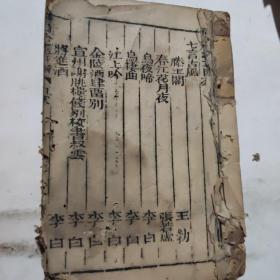 七言古風
滕王閣 王勃
春江花月夜 張若虛
烏夜啼 李白
烏棲曲 李白
江上吟 李白
金陵酒肆留別 李白
宣州謝朓樓餞別校書叔雲 李白
將進酒 李白